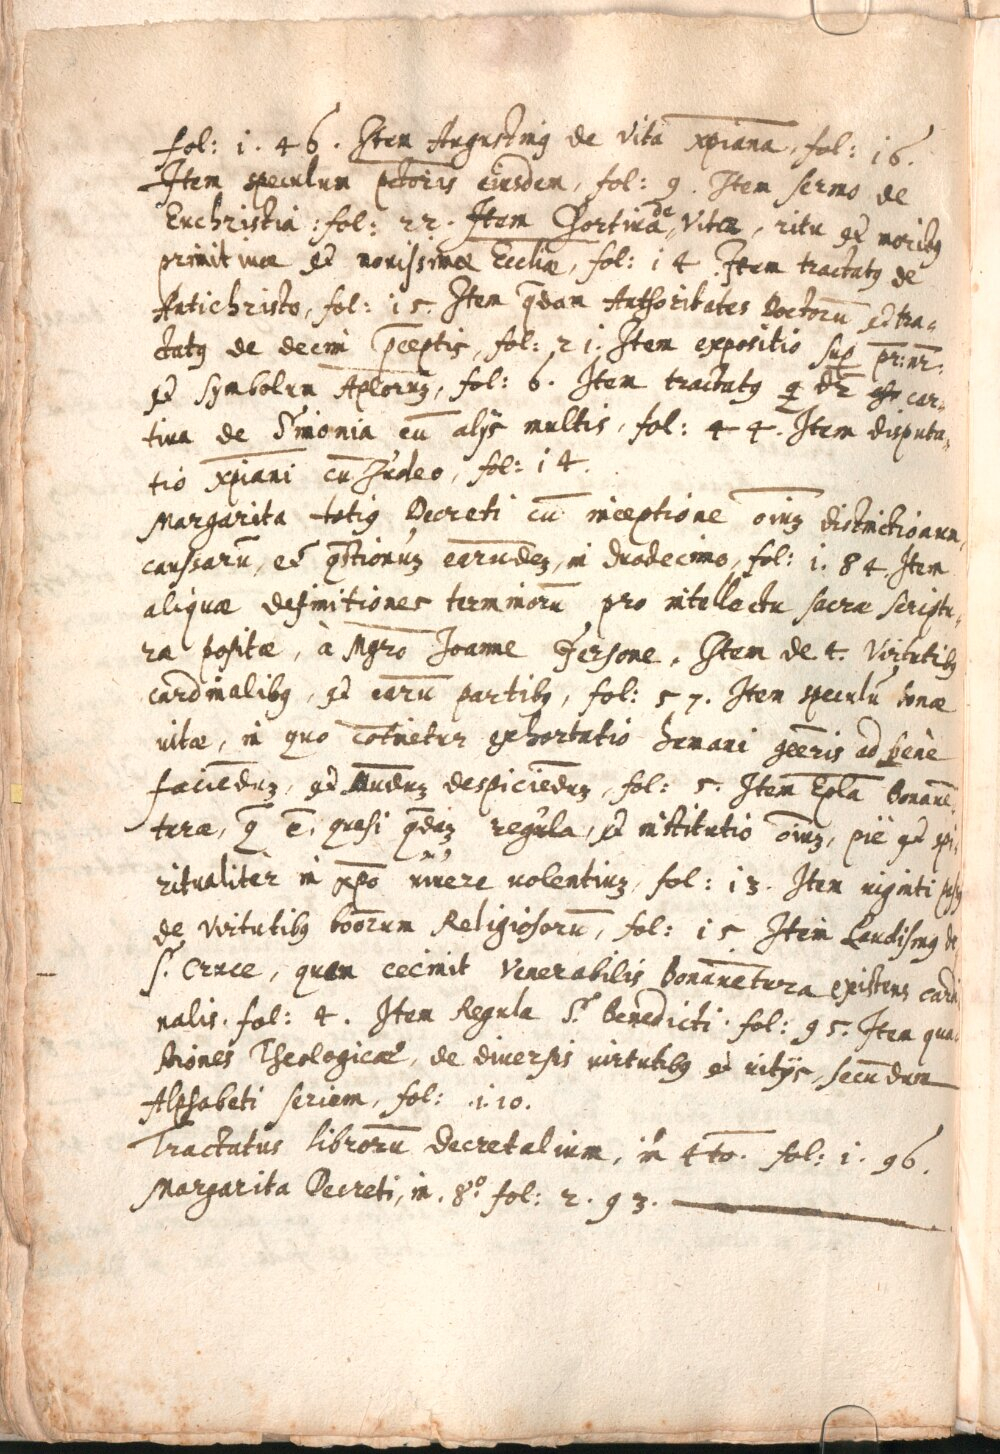 fol: 1. 46. Item Augustinꝰ de Vita xp̄iana, fol: 16.
Item speculum pctōris eiusdem, fol: 9. Item sermo de
Euchristia: fol: 22. Item de Vita, ritu et moribꝰ
primitiuæ et nouissimæ Eccl̄iæ, fol: 14. Item tractatꝰ de
Antichristo, fol: 15. Item qdam Authoritates Doctorū et tra-
ctatꝰ de decim p̄ceptis, fol: 21. Item expositio sup pr: nr:
et symbolum Ap̄lorum, fol: 6. Item tractatꝰ q dr̄ car-
tiua de Simonia cū alijs multis, fol: 44. Item disputa-
tio xp̄iani cū Iudeo, fol: 14.
Margarita totiꝰ Decreti cū inceptione oīuꝫ distinctionum,
caussarū, et qstionuꝫ earundeꝫ, in duodecimo, fol: 1. 84. Item
aliquæ definitiones terminorū pro intellectu sacræ scriptu-
ra positæ, à Mgr̄o Joanne Jersone. Item de 4. Virtutibꝰ
cardinalibꝰ, et earū partibꝰ, fol: 57. Item speculū bonæ
uitæ, in quo cōtinetur exhortatio humani gēris ad bene
faciēduꝫ, et mūduꝫ despiciēduꝫ, fol: 5. Item Ep̄la Bonauē-
turæ, q ē, quasi qdaꝫ regula, et institutio oīuꝫ, piè et spi-
ritualitèr in xp̄o viuere uolentiuꝫ, fol: 13. Item uiginti
de Virtutibꝰ bōorum Religiosorū, fol: 15. Item Laudismꝰ de
S. Cruce, quem cecinit Venerabilis Bonauētura existens cardi-
nalis. fol: 4. Item Regula S. Benedicti. fol: 95. Item quæ-
stiones Theologicæ, de diuersis uirtutibꝰ et uitijs, secundum
Alphabeti seriem, fol: 1. 10.
Tractatus librorū decretalium, in 4to. fol: 1. 96.
Margarita Decreti, in. 8º. fol: 2. 93.